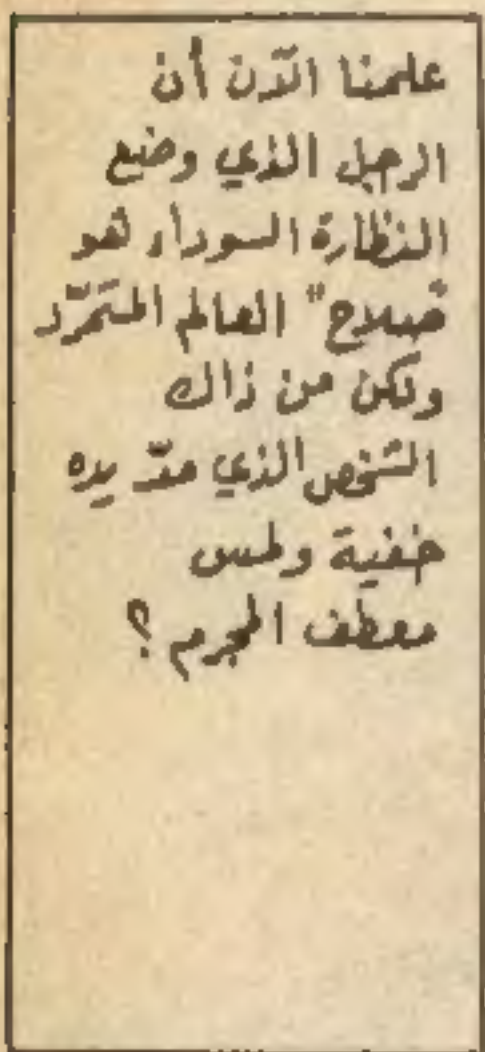 علمنا الآن أن
الرجل الذي وضع
النظارة السوداء هو
"صلاح" العالم المتمرّد
ولكن من ذاك
الشخص الذي مدّ يده
خفية ولمس
معطف المجرم ؟